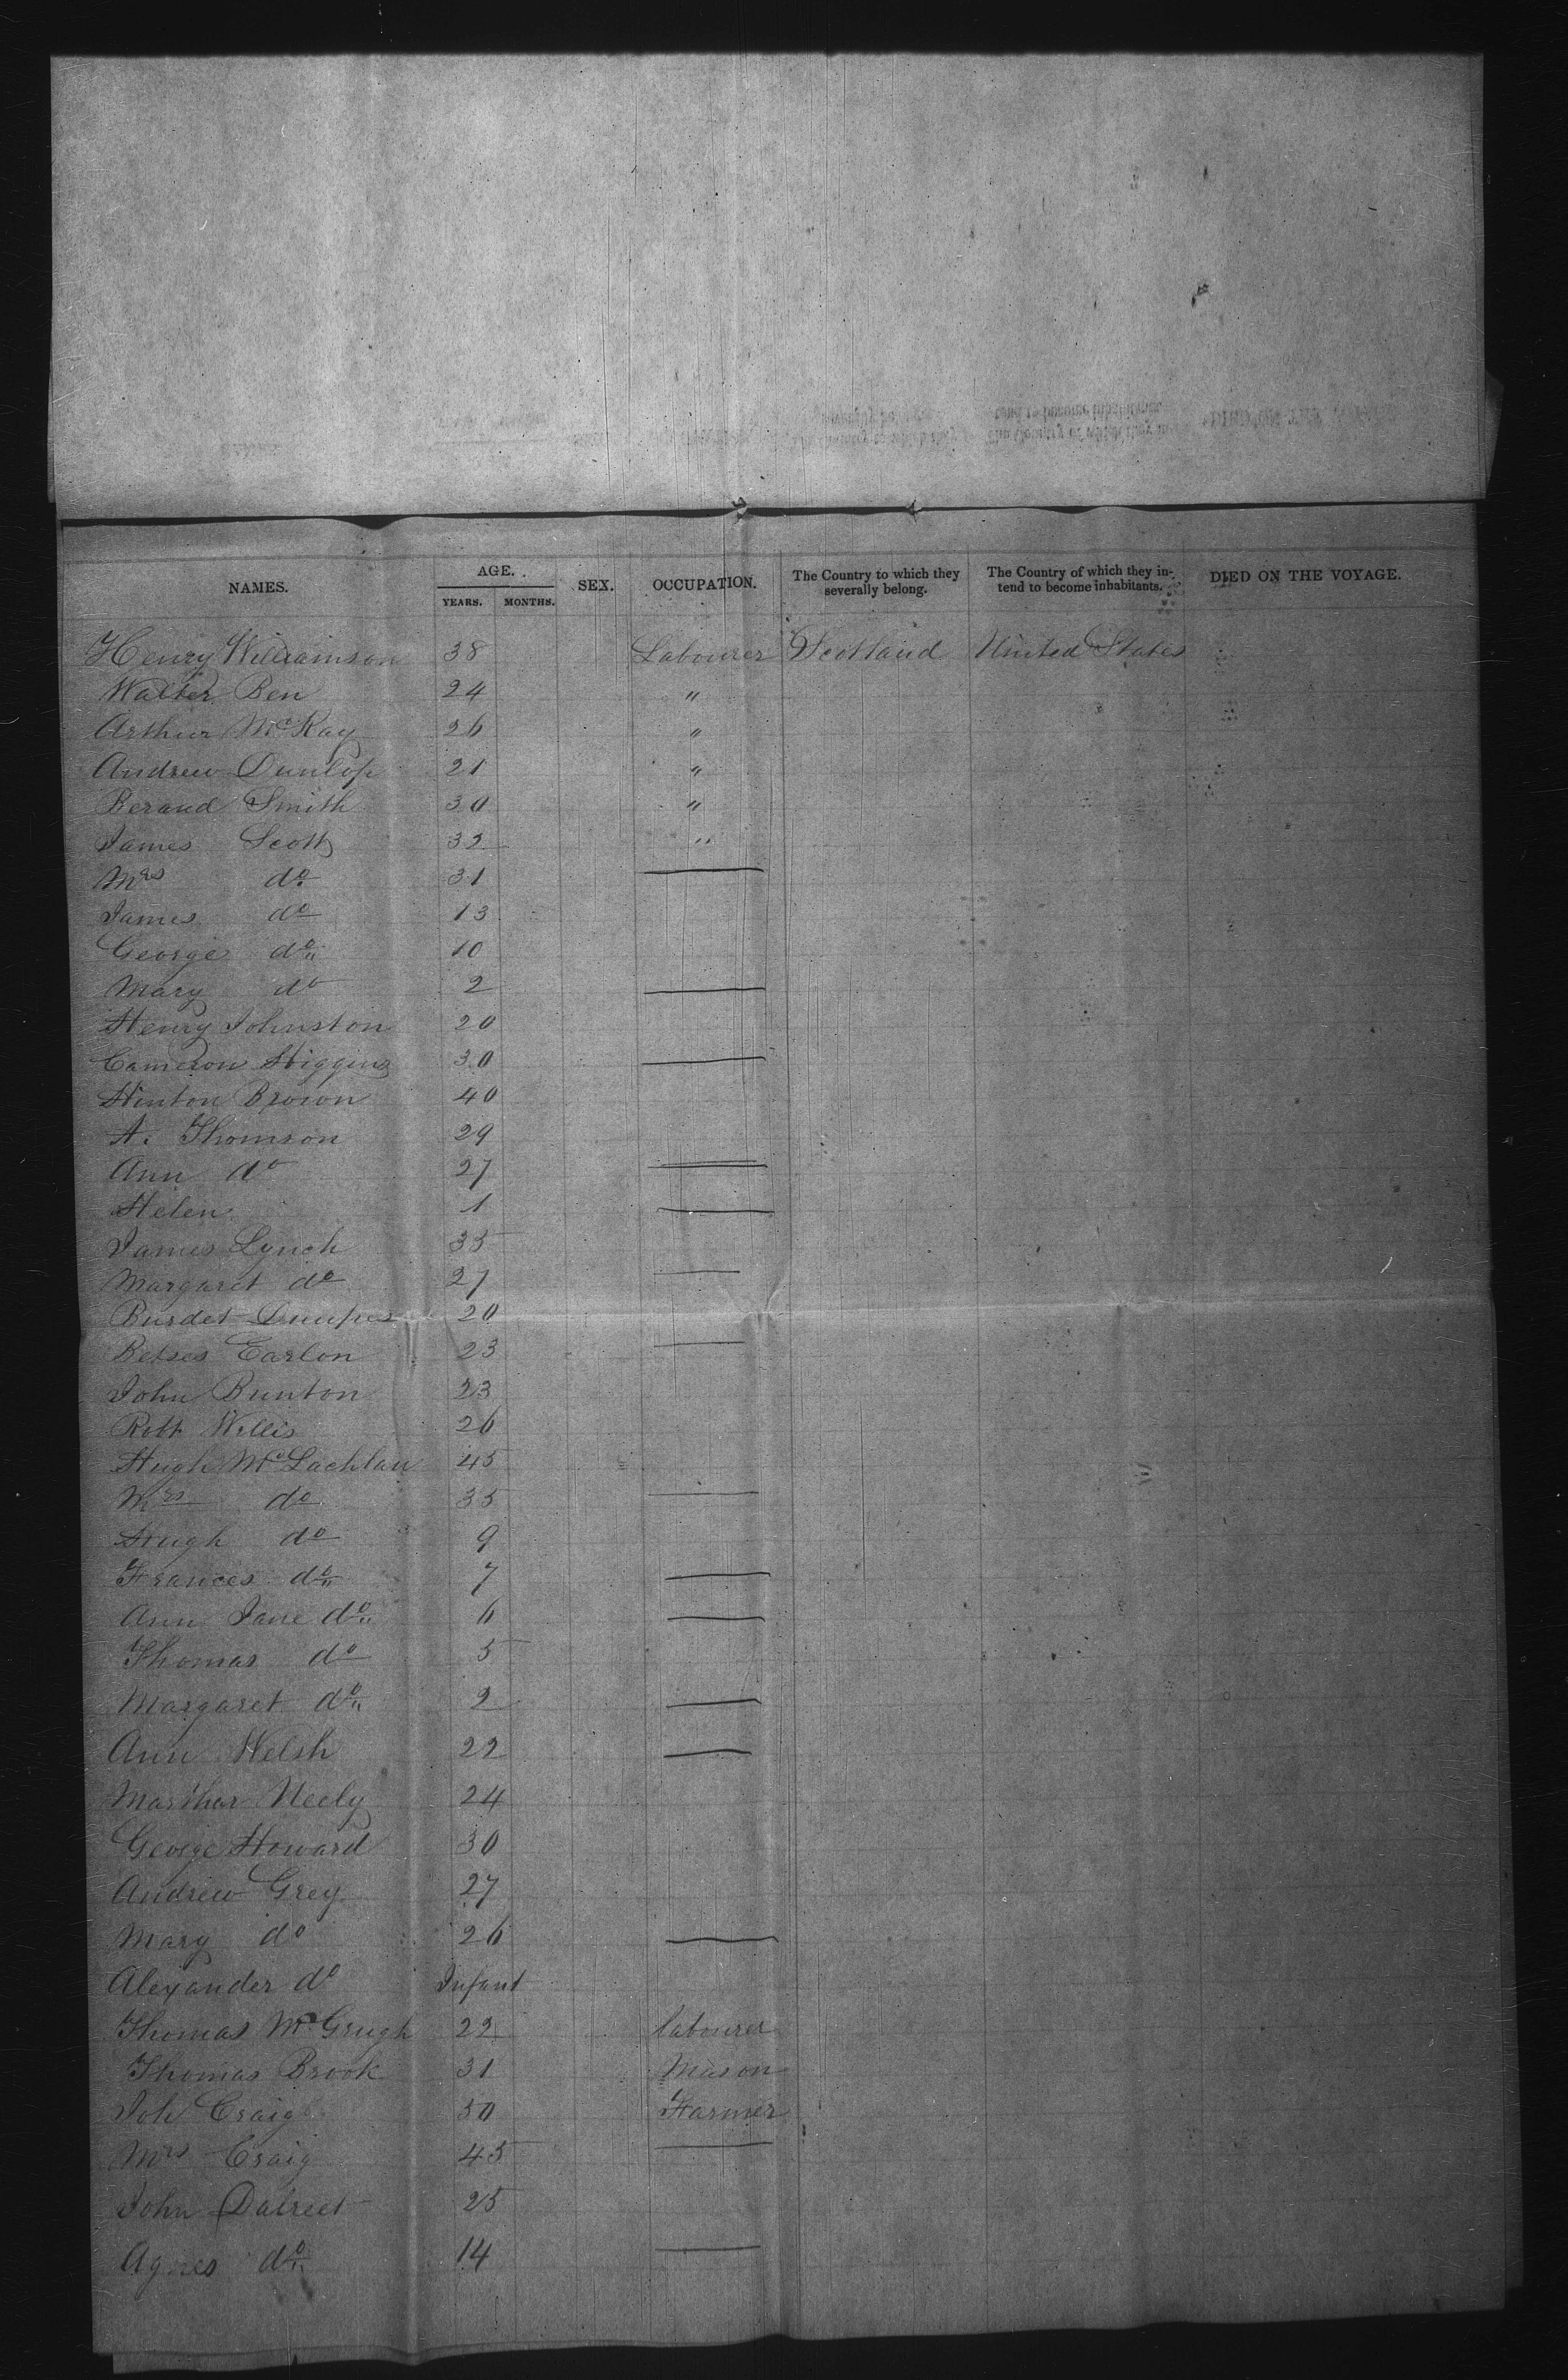 NAMES. AGE. YEARS. MONTHS. SEX. OCCUPATION. The Country to which they severally belong. The Country of which they intend to become inhabitants. DIED ON THE VOYAGE.
Henry Williamson 38 Labourer Scotland United States
Walter Ben 24 "
Arthur McKay 26 "
Andrew Dunlop 21 "
Berand Smith 30 "
James Scott 32 "
Mrs do 31 —
James do 13
George do 10
Mary do 2 —
Henry Johnston 20
Cameron Higgins 30 —
Hinton Brown 40
A. Thomson 29
Ann do 27 —
Helen 1 —
James Lynch 35
Margaret do 27 —
Burdet 20
Betses Earlon 23 —
John Bunton 23
Robt Willis 26
Hugh McLachlan 45
Mrs do 35 —
Hugh do 9
Frances do 7 —
Ann Jane do 6 —
Thomas do 5
Margaret do 2 —
Ann Welsh 22 —
Marthar Neely 24
George Howard 30
Andrew Grey 27
Mary do 26 —
Alexander do Infant
Thomas McGrugh 22 labourer
Thomas Brook 31 Mason
Joh Craig 50 Farmer
Mrs Craig 45 —
John 25
Agnes do 14 —